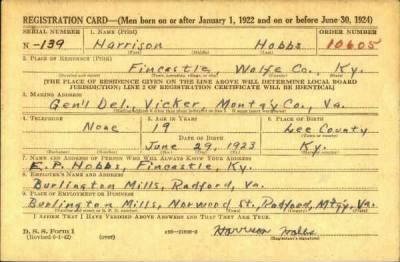 REGISTRATION CARD—(Men born on or after January 1, 1922 and on or before June 30, 1924)
SERIAL NUMBER 1. NAME (Print) ORDER NUMBER
N-139 Harrison Hobbs 10605
(First) (Middle) (Last)
2. PLACE OF RESIDENCE (Print)
Fincastle Wolfe Co., Ky.
(Number and street) (Town, township, village, or city) (County) (State)
[THE PLACE OF RESIDENCE GIVEN ON THE LINE ABOVE WILL DETERMINE LOCAL BOARD
JURISDICTION; LINE 2 OF REGISTRATION CERTIFICATE WILL BE IDENTICAL]
3. MAILING ADDRESS
Gen'l Del., Vicker Montg'y Co., Va.
4. TELEPHONE 5. AGE IN YEARS 6. PLACE OF BIRTH
None 19 Lee County
DATE OF BIRTH
June 29, 1923 Ky.
7. NAME AND ADDRESS OF PERSON WHO WILL ALWAYS KNOW YOUR ADDRESS
E. P. Hobbs, Fincastle, Ky.
8. EMPLOYER'S NAME AND ADDRESS
Burlington Mills, Radford, Va.
9. PLACE OF EMPLOYMENT OR BUSINESS
Burlington Mills, Norwood St., Radford, Mtg'y, Va.
I AFFIRM THAT I HAVE VERIFIED ABOVE ANSWERS AND THAT THEY ARE TRUE.
D. S. S. Form 1
(Revised 6-9-42) (over) Harrison Hobbs
(Registrant's signature)